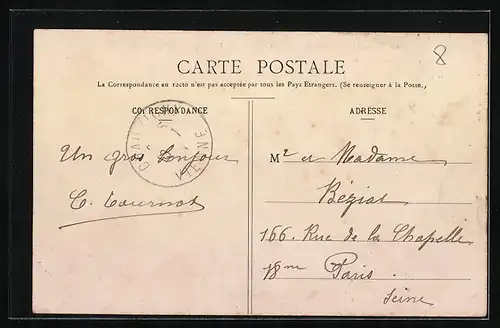 8
CARTE POSTALE
La Correspondance au recto n'est pas acceptée par tous les Pays Étrangers. (Se renseigner à la Poste.)
CORRESPONDANCE
ADRESSE
Un gros bonjour
Mr et Madame
Béziat
166. Rue de la Chapelle
18me Paris.
Seine